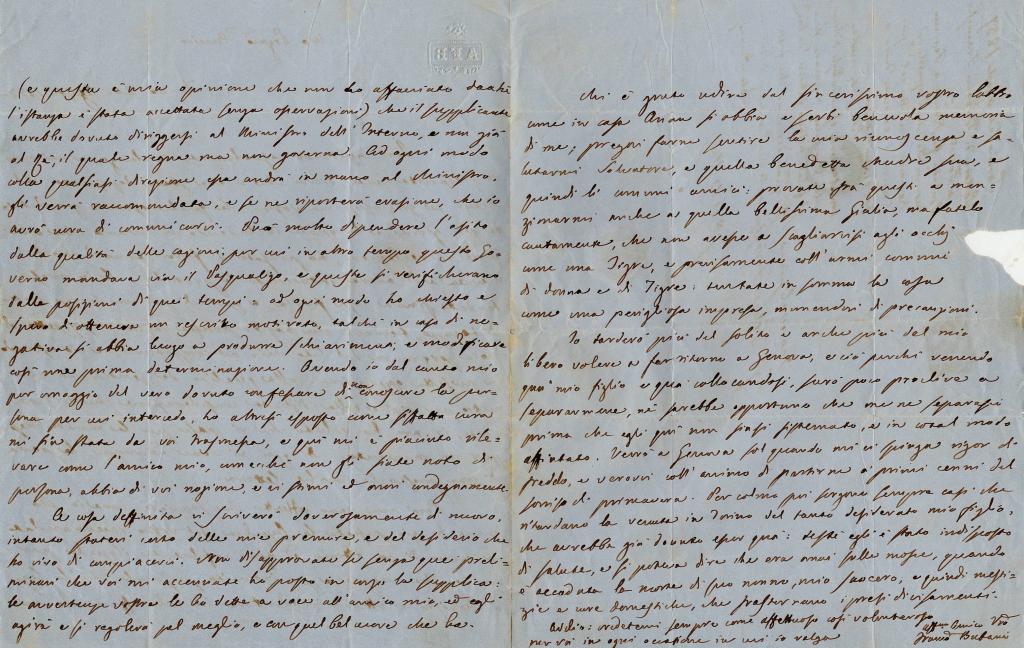 (e questa è mia opinione che non ho affacciato dacchè
l'istanza è stata accettata senza osservazioni) che il supplicante
avrebbe dovuto diriggersi al Ministro dell'Interno, e non già
al Re, il quale regna ma non governa. Ad ogni modo
colla qualsiasi direzione essa andrà in mano al Ministro,
gli verrà raccomandata, e se ne riporterà evasione, che io
avrò cura di comunicarvi. Può molto dipendere l'esito
dalla qualità delle cagioni, per cui in altro tempo questo Go-
verno mandava via il Pasqualigo, e queste si verificheranno
dalla posizioni di quei tempi: ad ogni modo ho chiesto e
spero di ottenere un rescritto motivato, talchè in caso di ne-
gativa si abbia luogo a produrre schiarimenti, e modificare
così una prima determinazione. Avendo io dal canto mio
per omaggio del vero dovuto confessare di non conoscere la per-
sona per cui intercedo, ho altresì esposto come siffatta cura
mi sia stata da voi trasmessa, e qui mi è piaciuto rile-
vare come l'amico mio, comecchè non gli siate noto di
persona, abbia di voi nozione, e vi stimi ed onori condegnamente.
A cosa deffinita vi scriverò doverosamente di nuovo,
intanto statevi certo delle mie premure, e del desiderio che
ho vivo di compiacervi. Non disapprovate se senza quei preli-
minari che voi mi accennate ha posto in corso la supplica:
le avvertenze vostre le ho dette a voce all'amico mio, ed egli
agirà e si regolerà pel meglio, e con quel bel cuore che ha.
Mi è grato udire dal sincerissimo vostro labbro
come in casa si abbia e serbi benevola memoria
di me; pregovi farne sentire la mia riconoscenza e sa-
lutarmi Salvatore, e quella benedetta Madre sua, e
quindi li comuni amici: provate frà questi a men-
zionarmi anche a quella bellissima Giulia, ma fatelo
cautamente, che non avesse a scagliarvisi agli occhj
come una Tigre, e precisamente coll'armi comuni
di donna e di Tigre: tentate in somma la cosa
come una perigliosa impresa, munendovi di precauzioni.
Io tarderò più del solito e anche più del mio
libero volere a far ritorno a Genova, e ciò perchè venendo
quà mio figlio e quà collocandosi, sarò poco proclive a
separarmene, nè sarebbe opportuno che me ne separassi
prima che egli quì non siasi sistemato, e in cotal modo
Verrò a Genova sol quando mi ci spinga rigor di
freddo, e verovvi coll'animo di partirne a primi cenni del
sorriso di primavera. Per colmo poi sorgono sempre casi che
ritardano la venuta in Torino del tanto desiderato mio figlio,
che avrebbe già dovuto esser quà: testè egli è stato indisposto
di salute, e si poteva dire che era anai sulle mosse, quando
è accaduta la morte di suo nonno, mio suocero, e quindi mesti-
zie e cure domestiche, che frastornano i presi divisamenti.
Addio: credetemi sempre come affettuoso così volonteroso
per voi in ogni occasione in cui io valga
Amico Vro